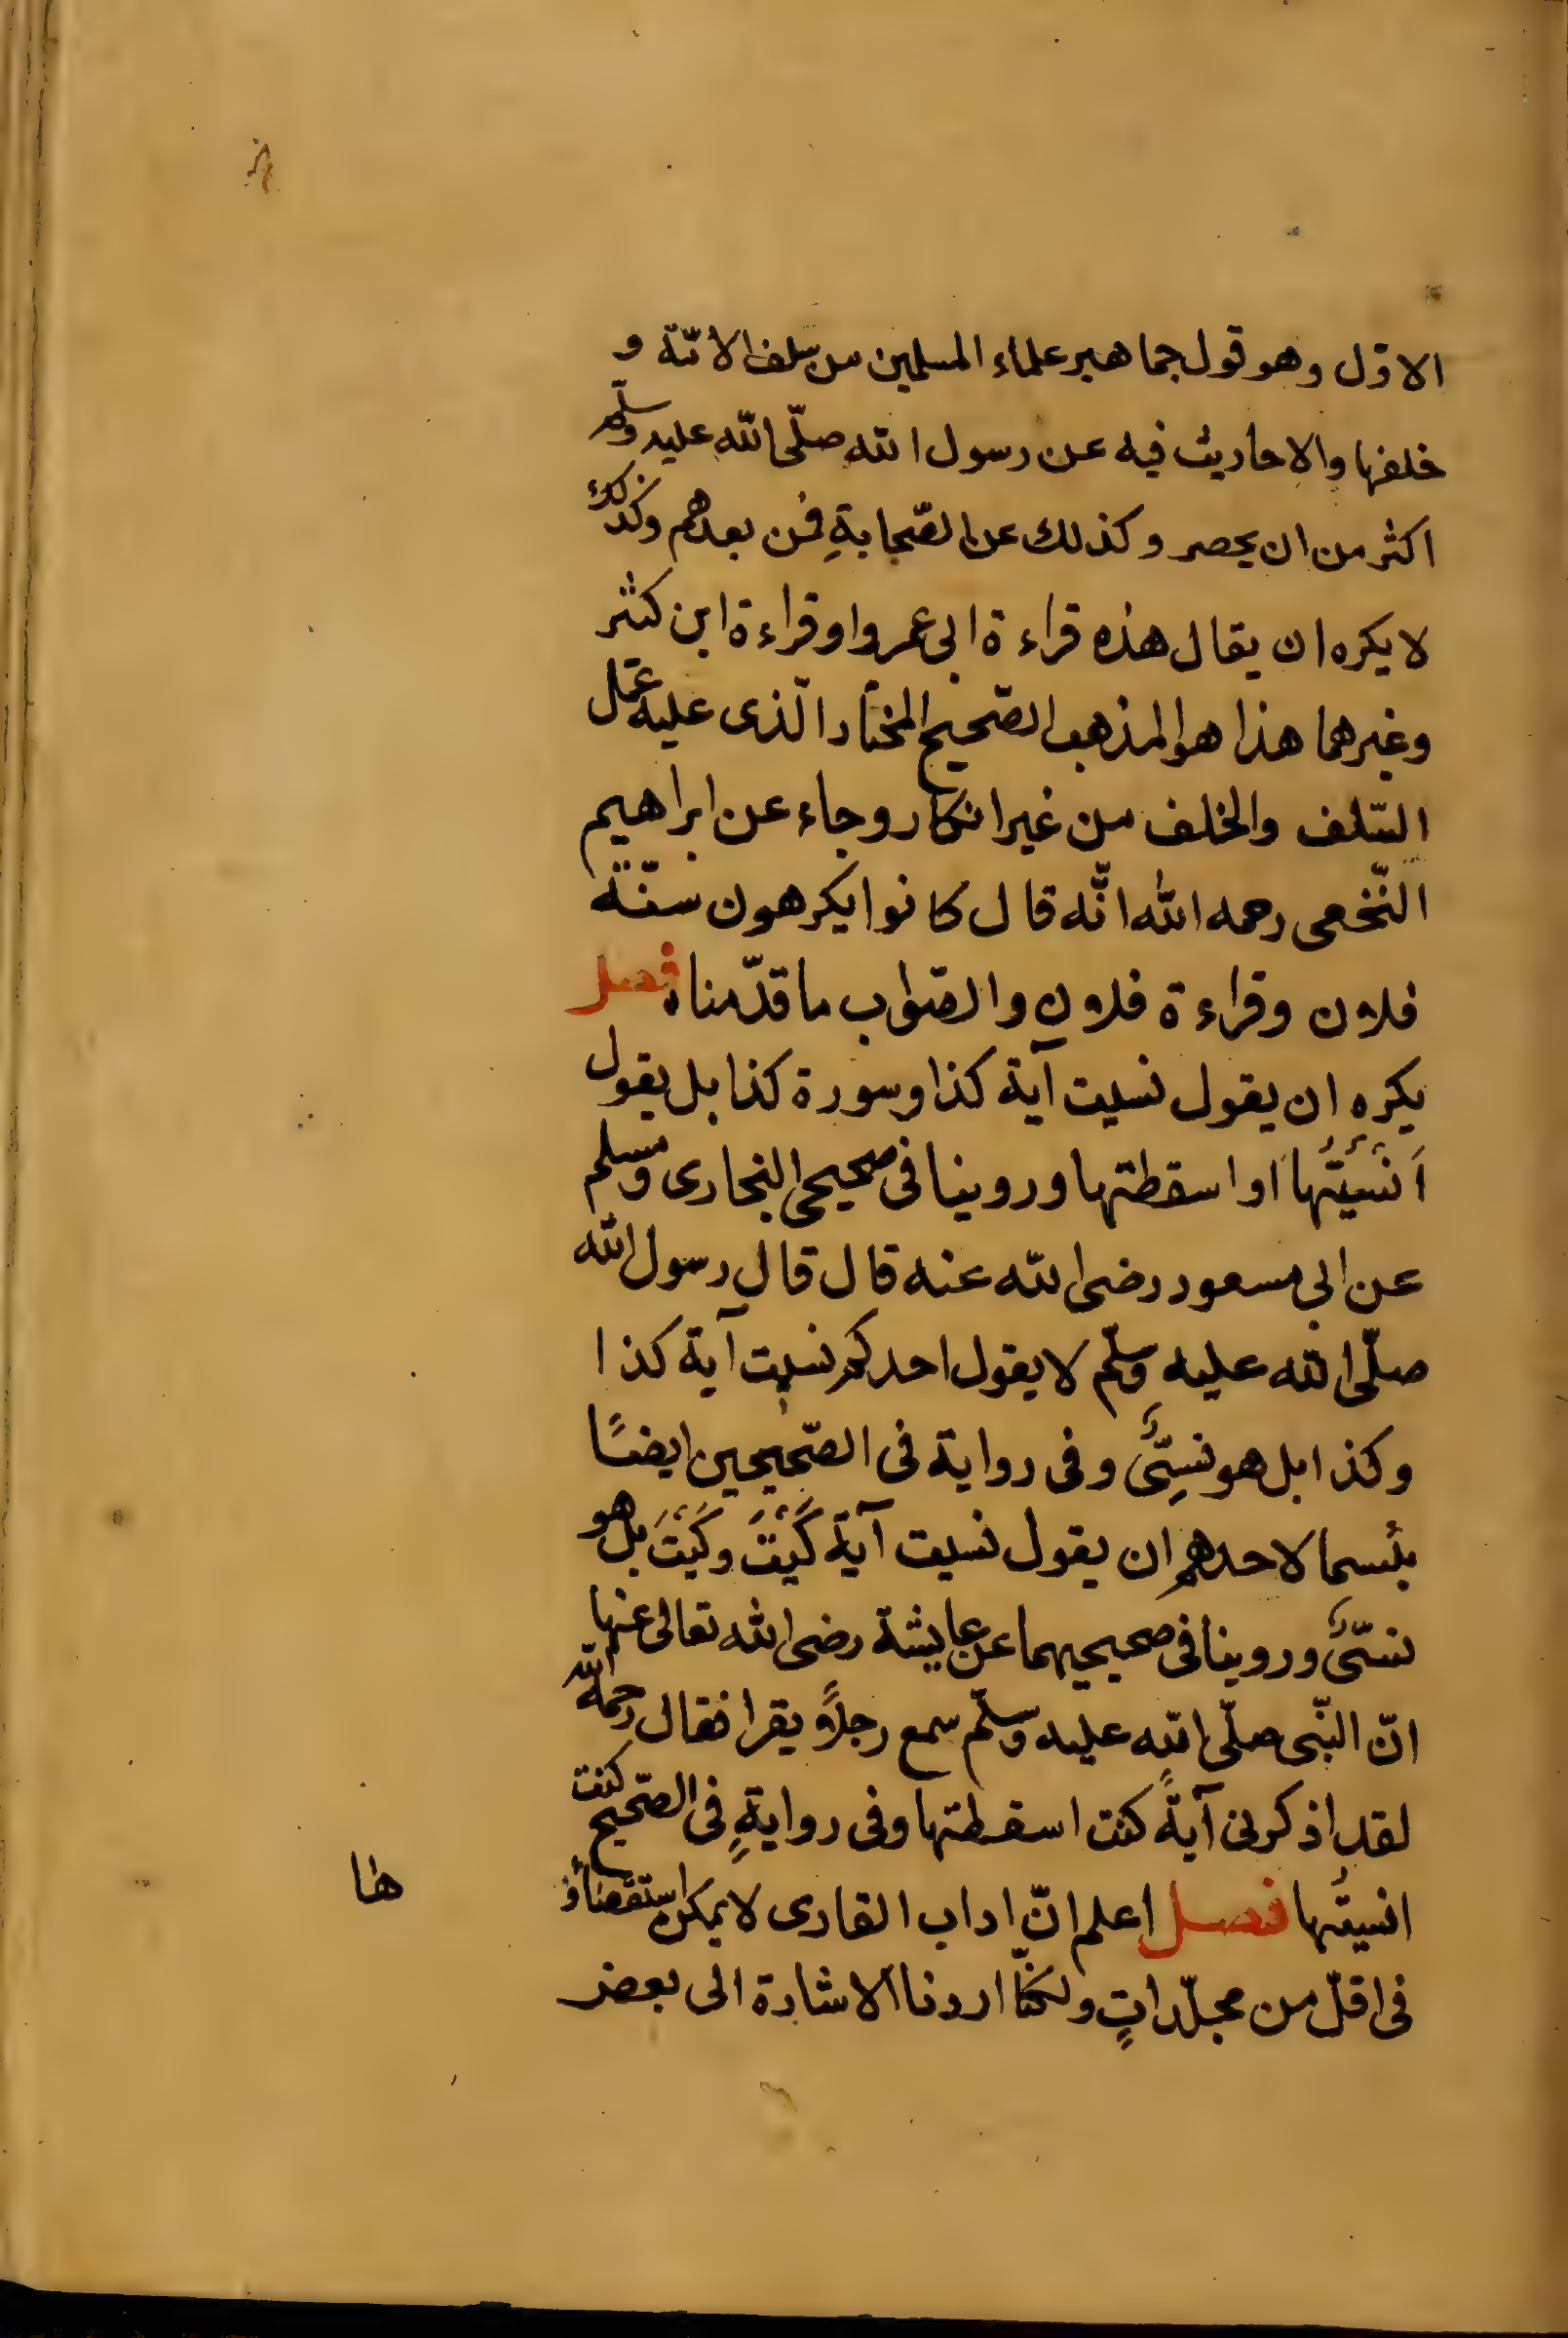 الاوّل وهو قول جماهير علماء المسلمين من سلف الامّة و
خلفها والاحاديث فيه عن رسول الله صلّى الله عليه وسلّم
اكثر من ان يحصر وكذلك عن الصّحابةِ فمن بعدهم وكذلك
لا يكره ان يقال هذه قراءة ابى عمرو او قراءة ابن كثير
وغيرهما هذا هو المذهب الصّحيح المختار الّذى عليه عمل
السّلف والخلف من غير انكار وجاء عن ابراهيم
النّخعى رحمه الله انّه قال كانوا يكرهون سنّة
فلان وقراءة فلان والصّواب ما قدّمناه فصل
يكره ان يقول نسيت آية كذا وسورة كذا بل يقول
اُنْسِيْتُها او اسقطتها وروينا فى صحيحى البخارى ومسلم
عن ابى مسعود رضى الله عنه قال قال رسول الله
صلّى الله عليه وسلّم لا يقول احدكم نسيت آية كذا
وكذا بل هو نسِّىَ وفى رواية فى الصّحيحين ايضًا
بئسما لاحدهم ان يقول نسيت آية كَيْتَ وكَيْتَ بل هو
نسّىَ وروينا فى صحيحيهما عن عايشة رضى الله تعالى عنها
انّ النّبى صلّى الله عليه وسلّم سمع رجلاً يقرا فقال رحمه الله
لقد اذكرنى آيةً كنت اسقطتها وفى روايةٍ فى الصّحيح كنت
انسيتُها فصل اعلم انّ اداب القارى لا يمكن استقصاؤ
ها
فى اقلّ من مجلّداتٍ ولكنّا اردنا الاشارة الى بعض